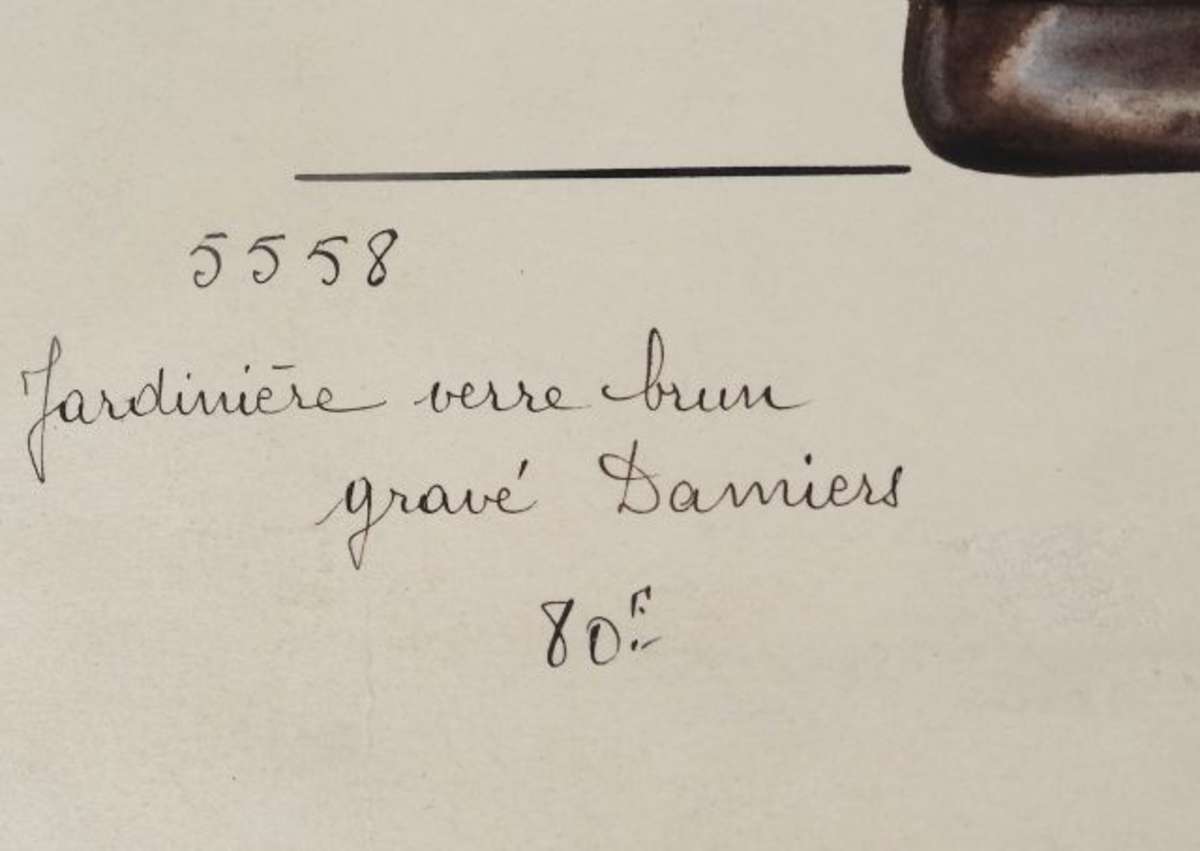 5558
Jardinière verre brun
gravé Damiers
80F